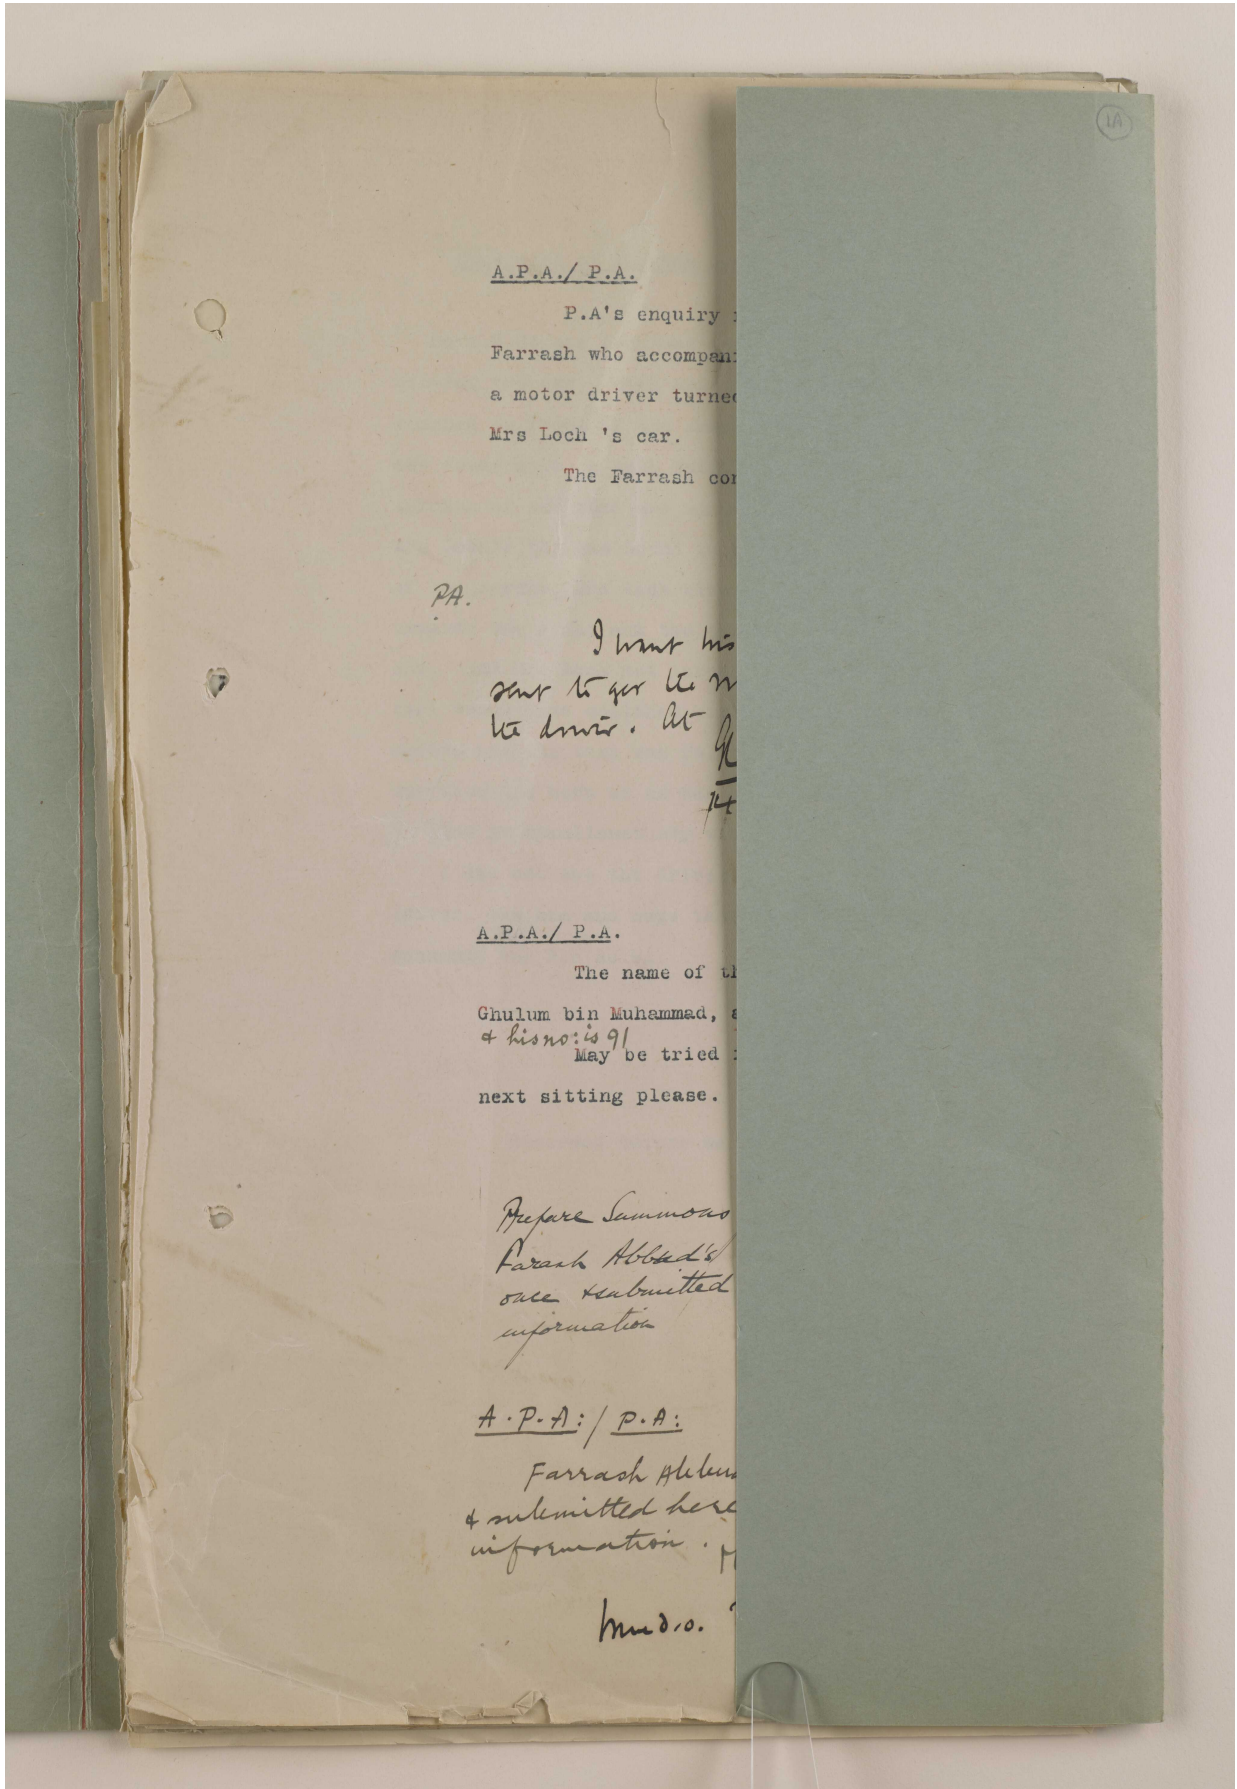 1A
A.P.A./ P.A.
P.A's enquiry
Farrash who accompan
a motor driver turned
Mrs Loch 's car.
The Farrash con
PA.
I want his
sent to get the
the driver. At
14
A.P.A./ P.A.
The name of th
Ghulum bin Muhammad, a
& his no: is 91
May be tried
next sitting please.
Prepare Summons
Farash Abbud's
once & submitted
information
A.P.A:/ P.A:
Farrash Abbu
& submitted here
information.